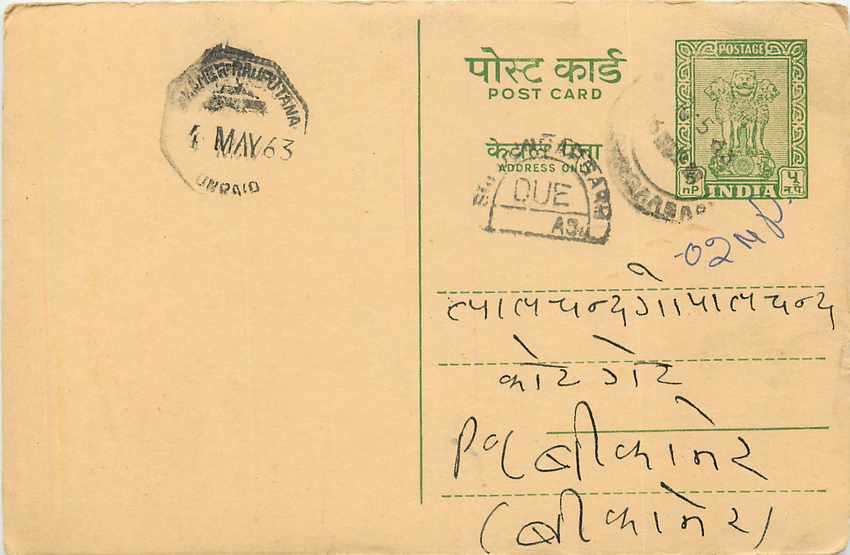 पोस्ट कार्ड
POST CARD
केवल पता
ADDRESS ONLY
POSTAGE
5 nP INDIA ५ न.पै.
RAJPUTANA
4 MAY 63
UNPAID
DUE
02 nP.
लालचन्द गोपालचन्द
कोटगेट
बीकानेर
(बीकानेर)